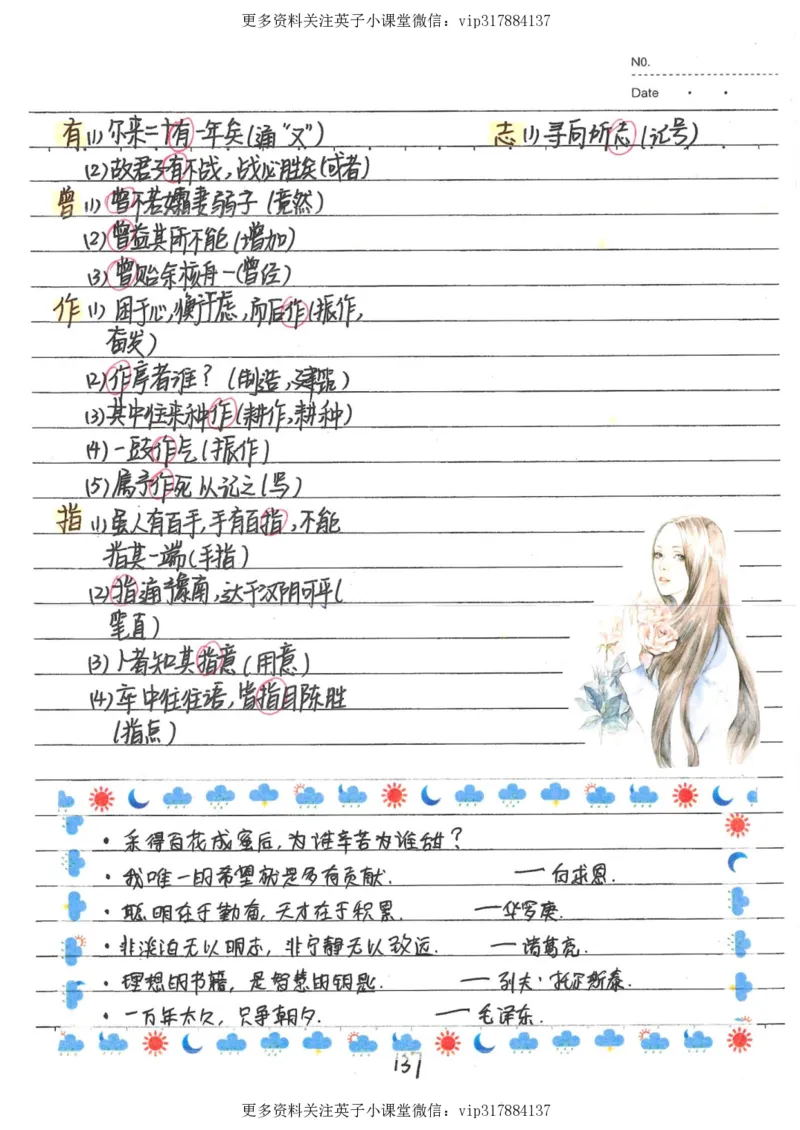 更多资料关注英子小课堂微信：vip317884137
NO.
Date
有 (1) 尔来二十有一年矣(通“又”)
(2) 故君子有不战，战必胜矣(或者)
曾 (1) 曾不若孀妻弱子 (竟然)
(2) 曾益其所不能 (增加)
(3) 曾贻余核舟一(曾经)
作 (1) 困于心，衡于虑，而后作(振作，
奋发)
(2) 作亭者谁？(制造，建筑)
(3) 其中往来种作(耕作，耕种)
(4) 一鼓作气 (振作)
(5) 属予作死以记之(写)
指 (1) 虽人有百手，手有百指，不能
指其一端(手指)
(2) 指通豫南，达于汉阴可乎(
笔直)
(3) 卜者知其指意(用意)
(4) 卒中往往语，皆指目陈胜
(指点)
志 (1) 寻向所志 (记号)
· 采得百花成蜜后，为谁辛苦为谁甜？
· 我唯一的希望就是多有贡献. —白求恩.
· 聪明在于勤奋，天才在于积累. —华罗庚.
· 非淡泊无以明志，非宁静无以致远. —诸葛亮.
· 理想的书籍，是智慧的钥匙. —列夫·托尔斯泰.
· 一万年太久，只争朝夕. —毛泽东.
137
更多资料关注英子小课堂微信：vip317884137